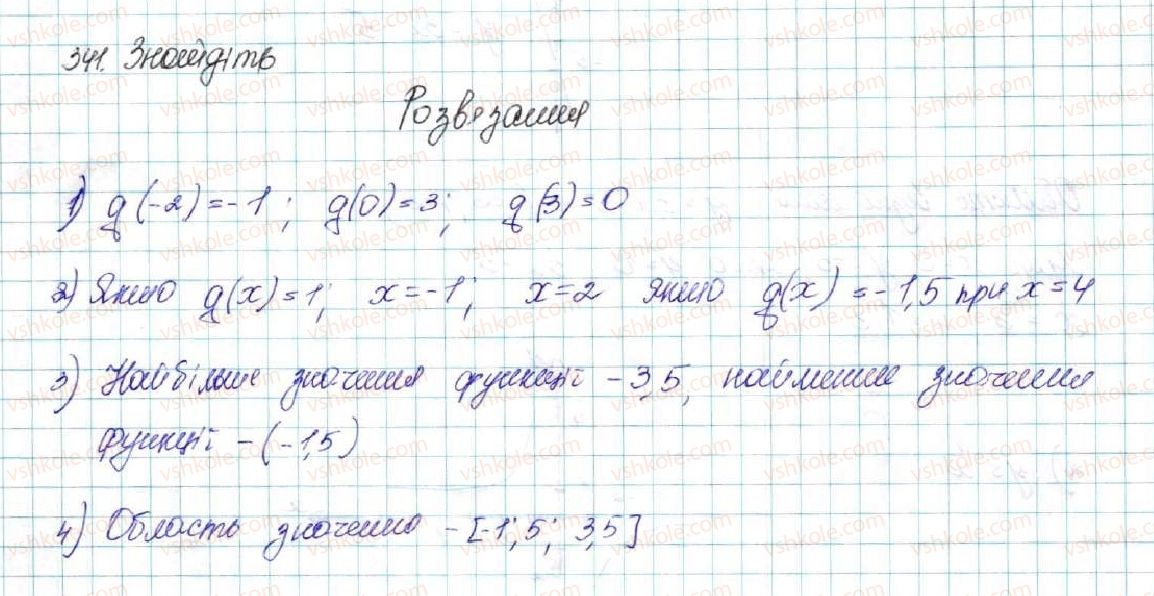 341. Знайдіть
Розвязання
1) g(-2)=-1; g(0)=3; g(3)=0
2) Якщо g(x)=1; x=-1; x=2 якщо g(x)=-1,5 при x=4
3) Найбільше значення функції - 3,5, найменше значення
функції - (-1,5)
4) Область значення - [-1; 5; 3,5]